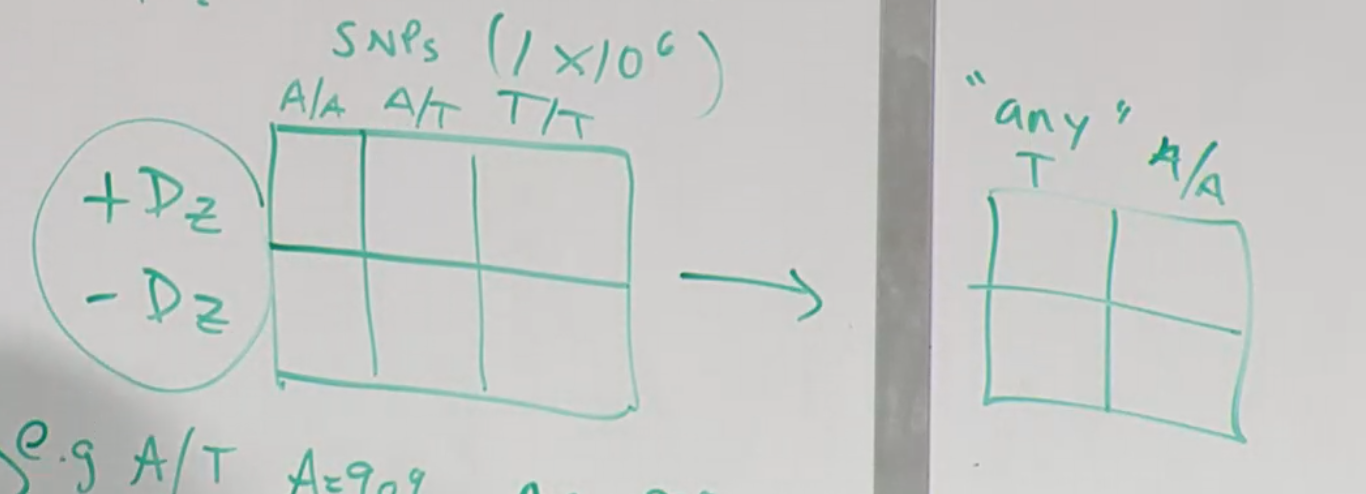 SNPs (1×10⁶)
A/A A/T T/T
+Dz
- Dz
"any" A/A
T
e.g A/T